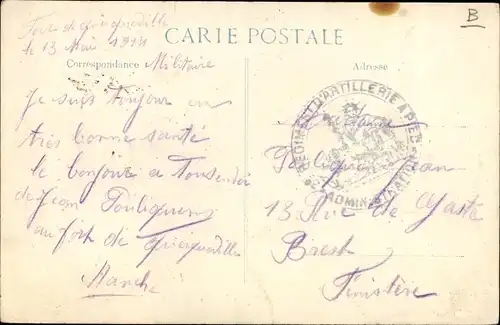 Fort de Querqueville
le 13 Mai 1914
CARTE POSTALE
B
Correspondance
Militaire
Adresse
Je suis toujour en
très bonne santé
le bonjour a
de Jean Pouliquen
au fort de Querqueville
Manche
RÉGIMENT D'ARTILLERIE A PIED
ADMINISTRATION
Jean
13 Rue de
Brest
Finistère